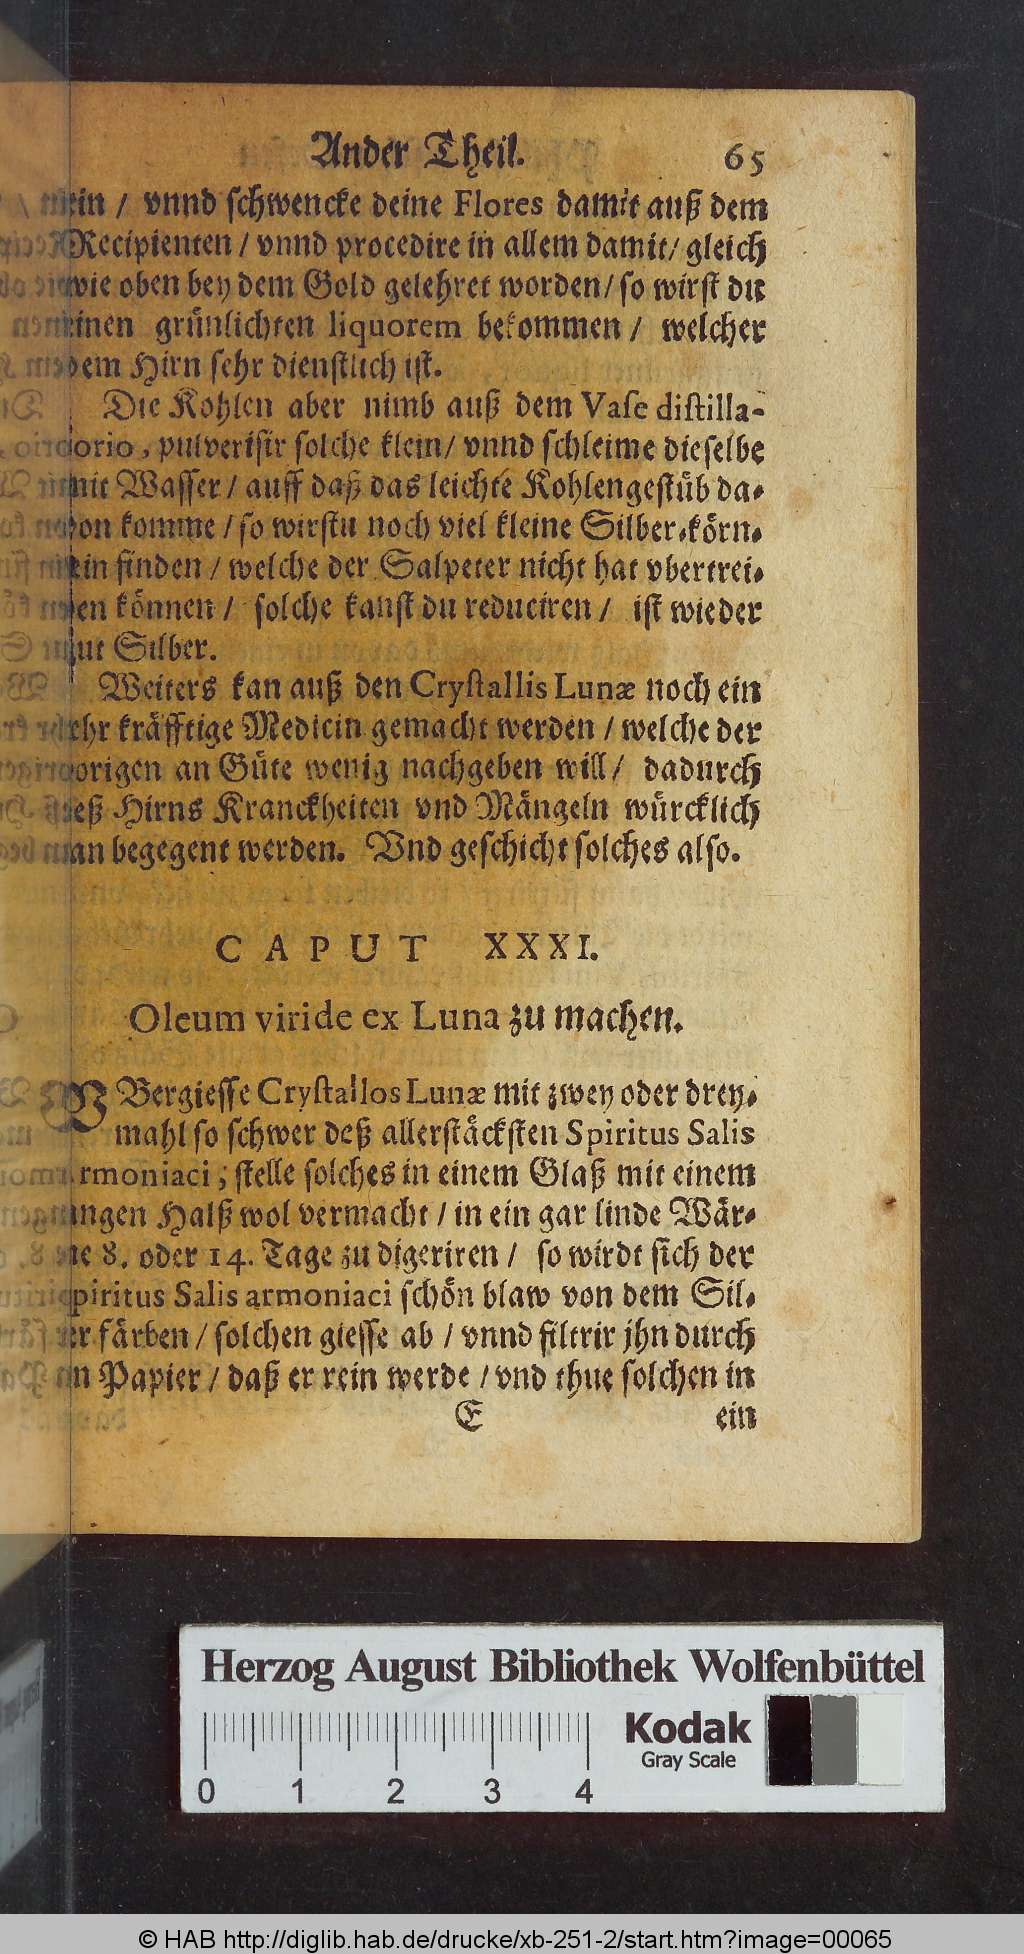 Ander Theil. 65
rin / vnnd schwencke deine Flores damit auß dem
Recipienten / vnnd procedire in allem damit / gleich
wie oben bey dem Gold gelehret worden / so wirst du
einen grünlichten liquorem bekommen / welcher
dem Hirn sehr dienstlich ist.
Die Kohlen aber nimb auß dem Vase distilla-
torio, pulverisir solche klein / vnnd schleime dieselbe
mit Wasser / auff daß das leichte Kohlengestüb da-
von komme / so wirstu noch viel kleine Silber-körn-
lein finden / welche der Salpeter nicht hat vbertrei-
ben können / solche kanst du reduciren / ist wieder
gut Silber.
Weiters kan auß den Crystallis Lunæ noch ein
sehr kräfftige Medicin gemacht werden / welche der
vorigen an Güte wenig nachgeben will / dadurch
deß Hirns Kranckheiten vnd Mängeln würcklich
kan begegent werden. Vnd geschicht solches also.
CAPUT XXXI.
Oleum viride ex Luna zu machen.
VBergiesse Crystallos Lunæ mit zwey oder drey-
mahl so schwer deß allerstäcksten Spiritus Salis
armoniaci, stelle solches in einem Glaß mit einem
langen Halß wol vermacht / in ein gar linde Wär-
me 8. oder 14. Tage zu digeriren / so wirdt sich der
Spiritus Salis armoniaci schön blaw von dem Sil-
ber färben / solchen giesse ab / vnnd filtrir jhn durch
ein Papier / daß er rein werde / vnd thue solchen in
E ein
Herzog August Bibliothek Wolfenbüttel
Kodak
Gray Scale
0 1 2 3 4
© HAB http://diglib.hab.de/drucke/xb-251-2/start.htm?image=00065